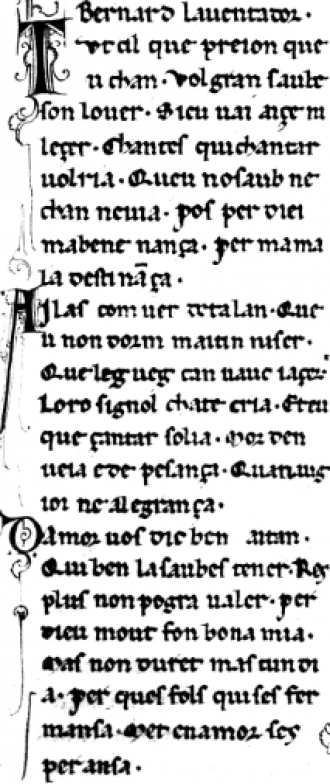 Bernard Lauentador.
Tut cil que preion que
u chan. volgran saube
son louer. Sieu uai aiçe ni
leçer. Chantes quichantar
uolria. Queu nosaub ne
chan neuia. pos per diei
mabene nança. per mama
la destināça.
Ailas com uer de talan. Que
u non dorm maitin niser.
Queleg nueg can uauc iaçer
Loro signol chāte cria. Eteu
que çantar solia. mor den
ueia ede pesança. Quanaug
ioi ne alegrança.
Damor uos die ben aitan.
Qui ben lasaubes tener. Res
plus non pogra ualer. per
dieu mout fon bona mia.
Mas non duret mas cun di
a. per ques fols quises fer
mansa. Met enamor ses
peransa.